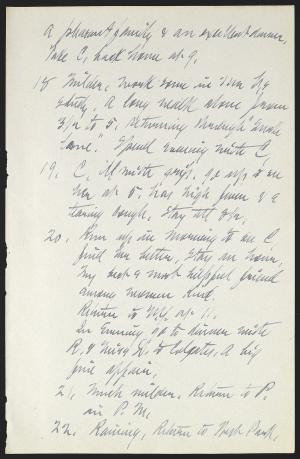 a pleasant family & an excellent dinner.
Take C. back home at 9.
18 Milder, work some in
study. A long walk alone from
3 1/2 to 5, returning through "
Lane." Spend evening with C.
19. C. ill with grip. go up to see
her at 5. has high fever & a
tearing cough. Stay till
20. Run up in morning to see C.
find her better, Stay an hour,
My best & most helpful friend
among women kind.
Return to N.Y. at 11.
In Evening go to dinner with
R. & Miss D. to Colgates, A big
fine affair.
21, Much milder. Return to P.
in P. M.
22. Raining, Return to West Park,